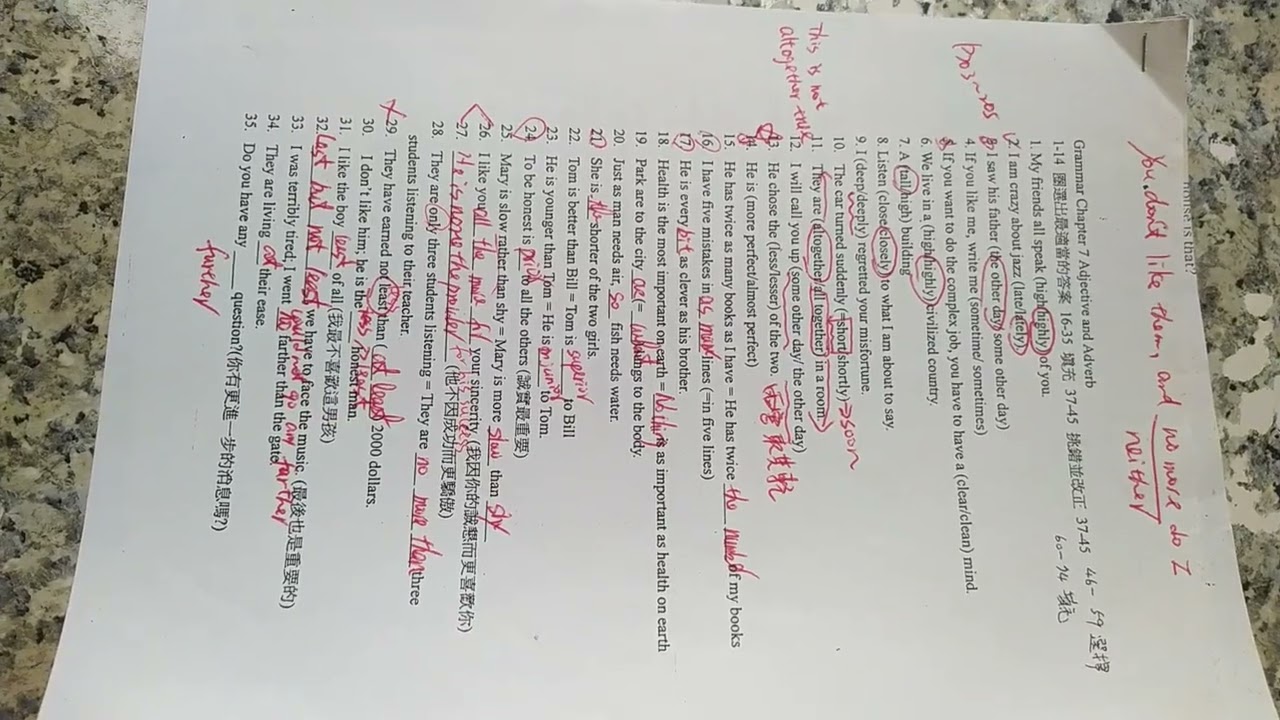 You don't like them, and no more do I
neither
Grammar Chapter 7 Adjective and Adverb
1-14 圈選出最適當的答案 16-35 填充 37-45 挑錯並改正 37-45 46-59 選擇
60-74 填充
1. My friends all speak (high/highly) of you.
2. I am crazy about jazz (late/lately)
3. I saw his father (the other day/ some other day)
4. If you like me, write me (sometime/ sometimes)
5. If you want to do the complex job, you have to have a (clear/clean) mind.
6. We live in a (high/highly) civilized country.
7. A (tall/high) building
8. Listen (close/closely) to what I am about to say.
9. I (deep/deeply) regretted your misfortune.
10. The car turned suddenly (=short/shortly) ⇒soon
11. They are (altogether/all together) in a room.
This is not
altogether true
12. I will call you up (some other day/ the other day)
13. He chose the (less/lesser) of the two.
14. He is (more perfect/almost perfect)
15. He has twice as many books as I have = He has twice the number of my books
16. I have five mistakes in as many lines (=in five lines)
17. He is every bit as clever as his brother.
18. Health is the most important on earth = Nothing is as important as health on earth
19. Park are to the city are (= what lungs to the body.
20. Just as man needs air, so fish needs water.
21. She is the shorter of the two girls.
22. Tom is better than Bill = Tom is superior to Bill
23. He is younger than Tom = He is junior to Tom.
24. To be honest is prior to all the others (誠實最重要)
25. Mary is slow rather than shy = Mary is more slow than shy
26. I like you all the more for your sincerity. (我因你的誠懇而更喜歡你)
27. He is none the prouder for his (他不因成功而更驕傲)
28. They are only three students listening = They are no more than three
students listening to their teacher.
29. They have earned not least than (at least 2000 dollars.
30. I don't like him; he is the honest man.
31. I like the boy least of all (我最不喜歡這男孩)
32. last but not least we have to face the music. (最後也是重要的)
33. I was terribly tired; I went no farther than the gate
could not go any farther
34. They are living at their ease.
35. Do you have any ______ question?(你有更進一步的消息嗎?)
further